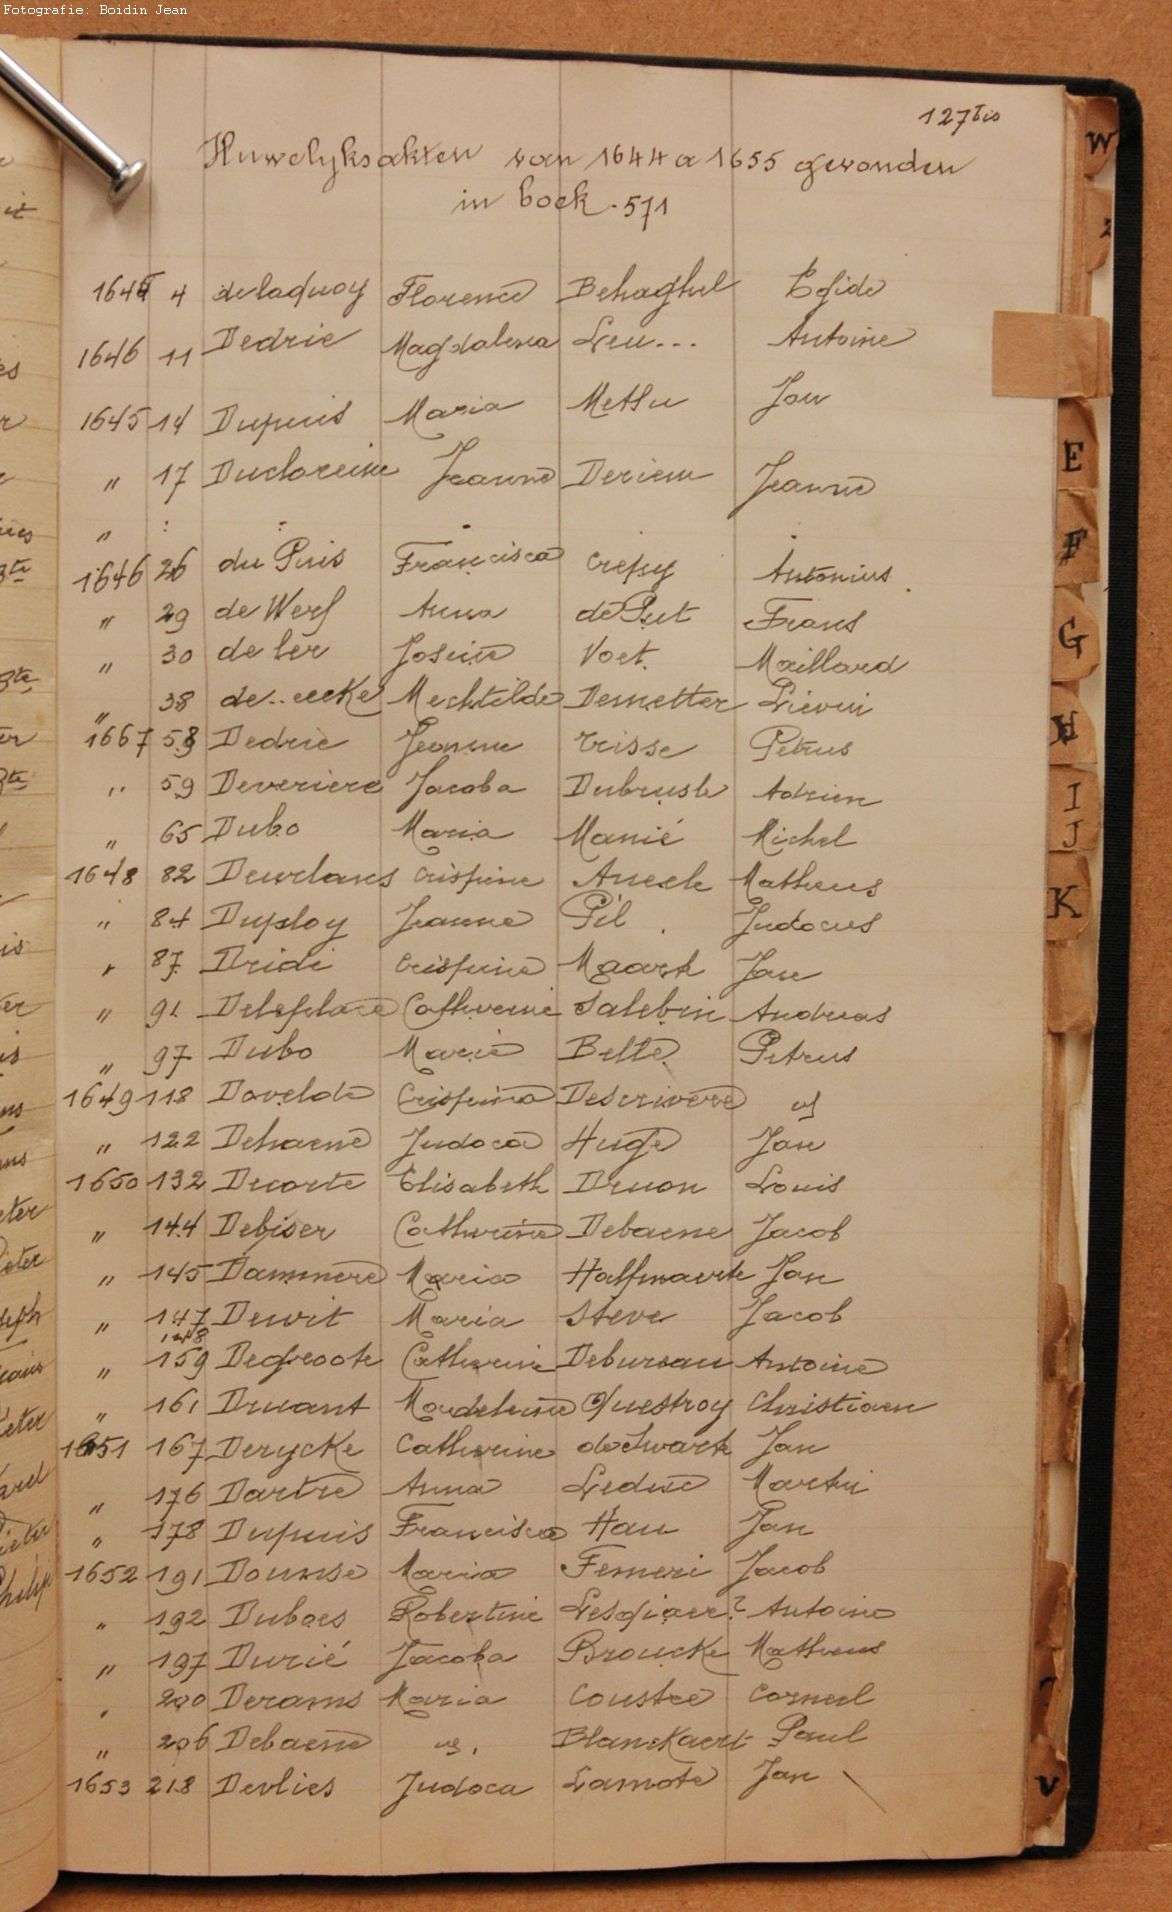 Fotografie: Boidin Jean
127 bis
Huwelyksakten van 1644 a 1655 gevonden
in boek 571
4 delaquoy Florence Behaghel Egide
1646 11 Dedrie Magdalena Leu... Antoine
1645 14 Dupuis Maria Methu Jan
" 17 Jeanne Deriem Jeanne
"
1646 26 du Puis Francisca Crepsy Antonius
" 29 de Werf Anna de Put Frans
" 30 de ler Josine Voet Maillard
" 38 de..eecke Mechtilde Demetter Lievin
1667 58 Dedrie Jeanne Trisse Petrus
" 59 Deveriere Jacoba Adrien
" 65 Dubo Maria Manié Michel
1648 82 Crispine Matheus
" 84 Duploy Jeanne Pil Judocus
" 87 Dridi Crispine Maark Jan
" 91 Deleplace Catherine Salebin Andreas
" 97 Dubo Marie Belle Petrus
1649 118 Davelde Crispina Descrivere
" 122 Dehaene Judoca Huge Jan
1650 132 Decorte Elisabeth Druon Louis
" 144 Debiser Catherine Debaene Jacob
" 145 Dammere Maria Halfmaerte Jan
" 147 Dewit Maria Steve Jacob
148
" 159 Degroote Catherine Debureau Antoine
" 161 Druant Madeleine Questroy Christiaen
1651 167 Derycke Catherine de Swarte Jan
" 176 Dartre Anna Leduc Martin
" 178 Dupuis Francisca Hau Jan
1652 191 Dounse Maria Femeri Jacob
" 192 Duboes Robertine Lesgiaer? Antoine
" 197 Durié Jacoba Broucke Matheus
" 200 Derams Maria Coustee Corneel
" 206 Debaene Blanckaert Paul
1653 218 Devlies Judoca Lamote Jan
W
E
F
G
H
I
J
K
V